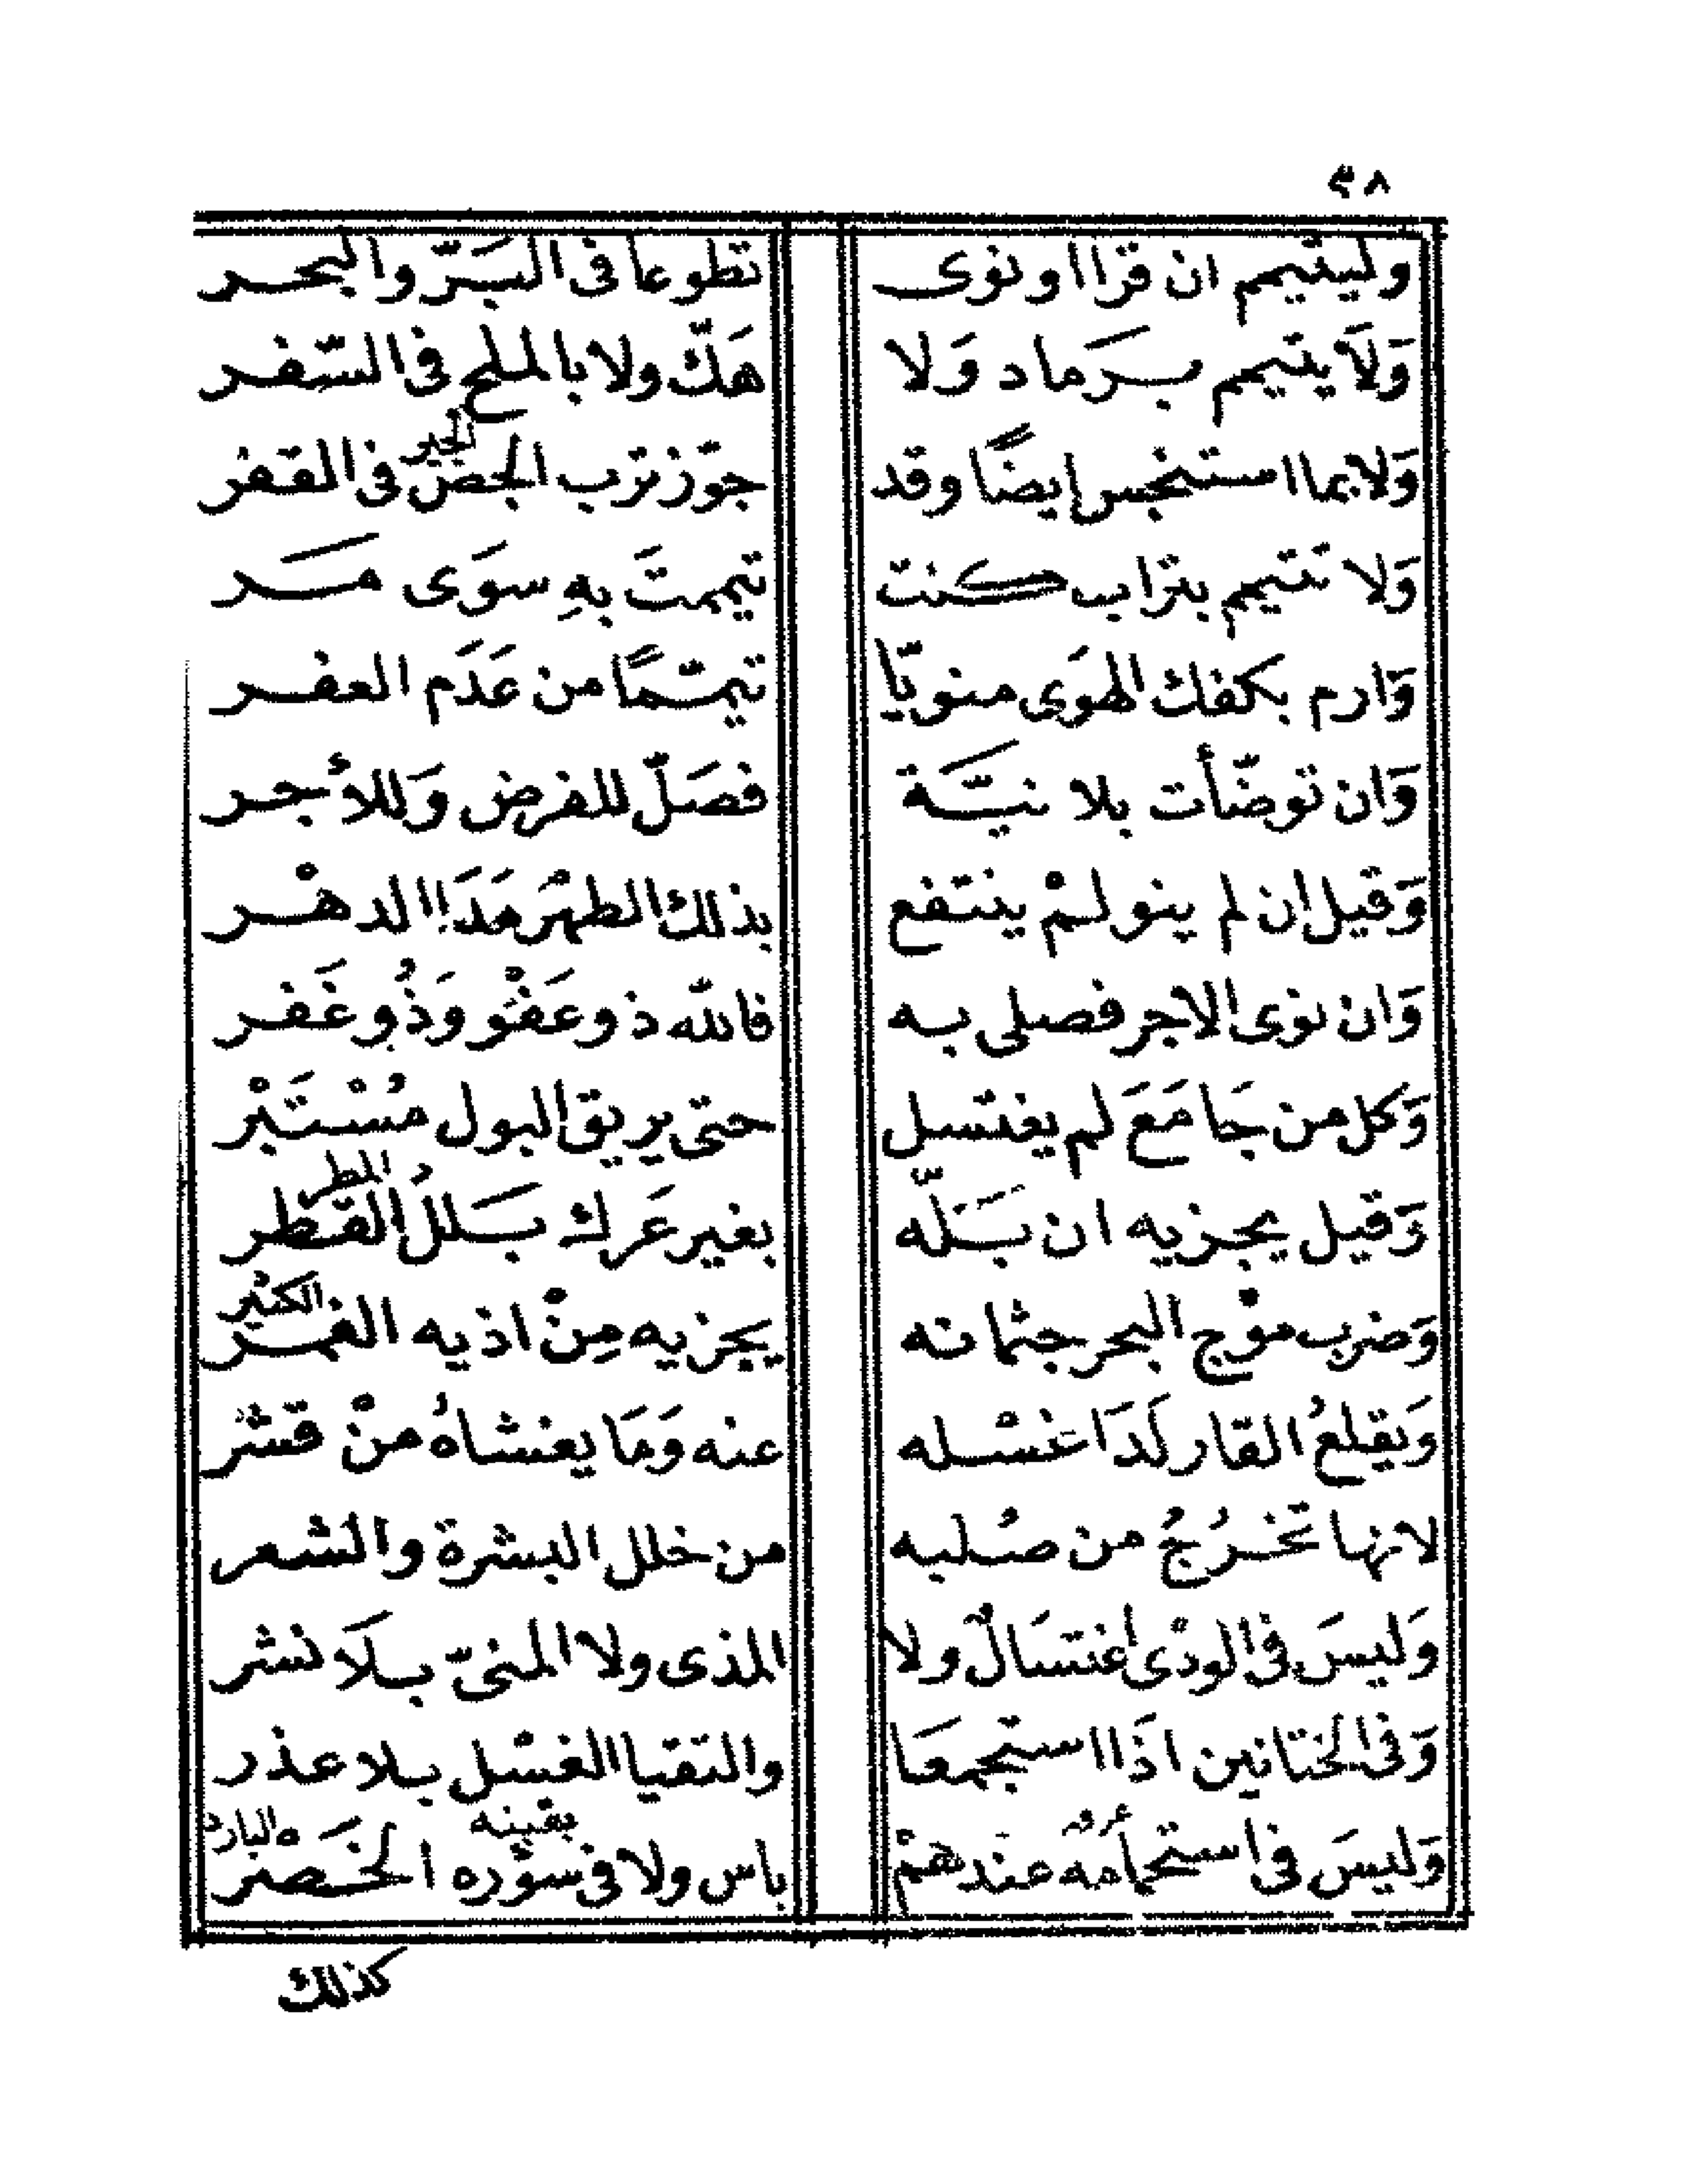 ٣٨
وليتيمم ان قرا او نوى تطوعا فى البَرّ والبحر
وَلَا يتيمم برَماد وَلا هَكّ ولا بالملح فى السّفر
وَلا بما استنجس ايضًا وقد جوّز ترب الجص فى القفر
الجير
وَلا تتيمم بتراب كنت تيممتَ بهِ سوَى مَر
وَارم بكفك الهوَى منويّا تيمّمًا من عَدَم العفر
وَان توضّأت بلا نيّة فصَلّ للفرض وَللأجر
وَقيل ان لم ينو لمْ ينتفع بذلك الطهْر مَدَا الدهْر
وَان نوى الاجر فصلى به فالله ذو عَفْو وَذُو غَفر
وَكل من جَامَعَ لم يغتسل حتى يريق البول مُسْتَبْر
وَقيل يجزيه ان بَلّه بغير عَرك بَللُ القطر
المطر
وَضرب موْج البحر جثمانه يجزيه مِنْ اذيه الغمر
الكثير
وَيقلعُ القار لَدَا غسْله عنه وَمَا يغشاهُ منْ قشر
لانها تخرُجُ من صُلبه من خلل البشرة والشعر
وَليسَ فى الودْى اغتسَالٌ ولا المذى ولا المنىّ بلَا نشر
وَفى الختانين اذَا استجمعَا والتقيا الغسْل بلا عذر
وَليسَ فى استحمامه عندهمْ باس ولا فى سؤره الخَصر
عرقه
بقيته
البارد
كذلك